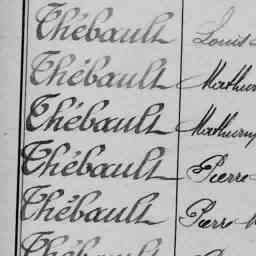 Thébault Louis
Thébault Mathurin
Thébault Mathurin
Thébault Pierre
Thébault Pierre
Thébault